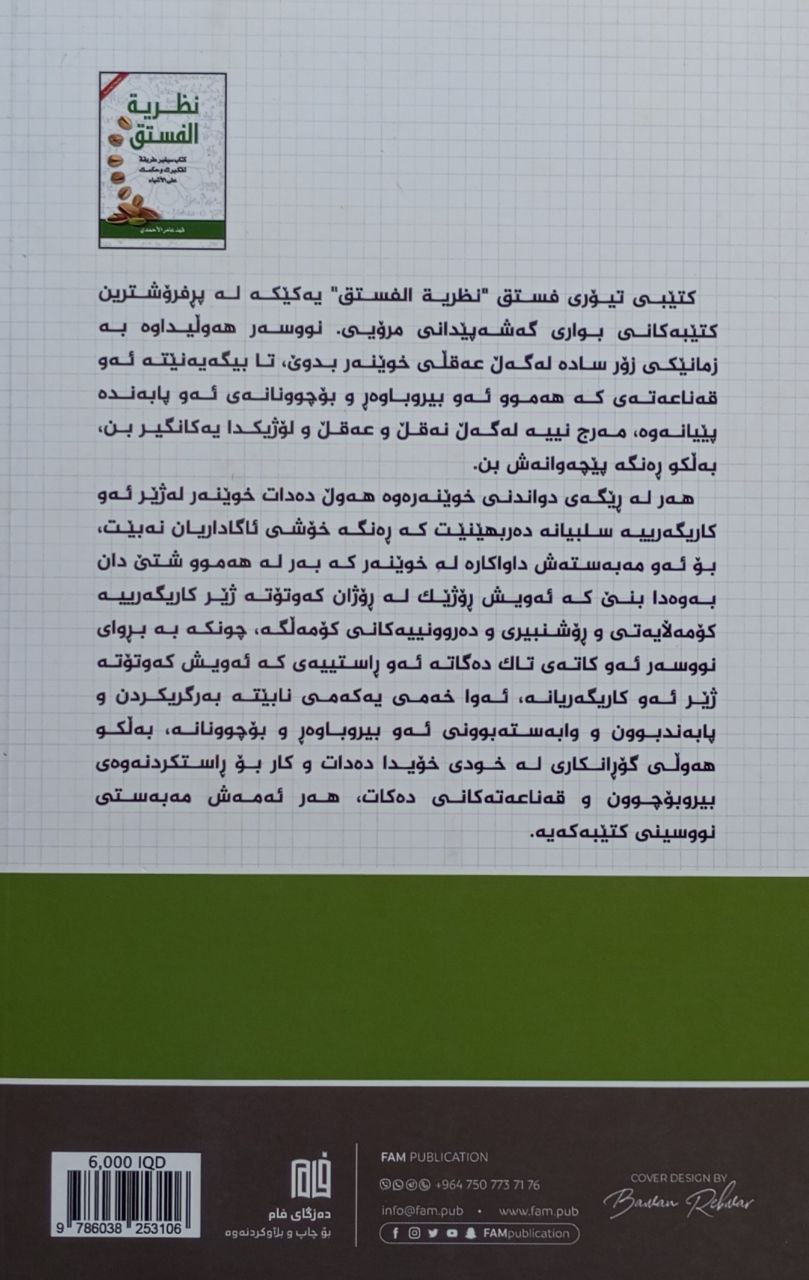 نظرية
الفستق
كتاب سيغير طريقة
تفكيرك وحكمك
على الأشياء
فهد عامر الأحمدي
كتێبی تیۆری فستق "نظریة الفستق" یەکێکە لە پڕفرۆشترین
کتێبەکانی بواری گەشەپێدانی مرۆیی. نووسەر هەوڵیداوە بە
زمانێکی زۆر سادە لەگەڵ عەقڵی خوێنەر بدوێ، تا بیگەیەنێتە ئەو
قەناعەتەی کە هەموو ئەو بیروباوەڕ و بۆچوونانەی ئەو پابەندە
پێیانەوە، مەرج نییە لەگەڵ نەقڵ و عەقڵ و لۆژیکدا یەکانگیر بن،
بەڵکو ڕەنگە پێچەوانەش بن.
هەر لە ڕێگەی دواندنی خوێنەرەوە هەوڵ دەدات خوێنەر لەژێر ئەو
کاریگەرییە سلبیانە دەربهێنێت کە ڕەنگە خۆشی ئاگاداریان نەبێت،
بۆ ئەو مەبەستەش داواکارە لە خوێنەر کە بەر لە هەموو شتێ دان
بەوەدا بنێ کە ئەویش ڕۆژێك لە ڕۆژان کەوتۆتە ژێر کاریگەرییە
کۆمەڵایەتی و ڕۆشنبیری و دەروونییەکانی کۆمەڵگە، چونکە بە بڕوای
نووسەر ئەو کاتەی تاك دەگاتە ئەو ڕاستییەی کە ئەویش کەوتۆتە
ژێر ئەو کاریگەریانە، ئەوا خەمی یەکەمی نابێتە بەرگریکردن و
پابەندبوون و وابەستەبوونی ئەو بیروباوەڕ و بۆچوونانە، بەڵکو
هەوڵی گۆڕانکاری لە خودی خۆیدا دەدات و کار بۆ ڕاستکردنەوەی
بیروبۆچوون و قەناعەتەکانی دەکات، هەر ئەمەش مەبەستی
نووسینی کتێبەکەیە.
6,000 IQD
9 786038 253106
فام
دەزگای فام
بۆ چاپ و بڵاوکردنەوە
FAM PUBLICATION
+964 750 773 71 76
info@fam.pub • www.fam.pub
FAMpublication
COVER DESIGN BY
Bawan Rebwar